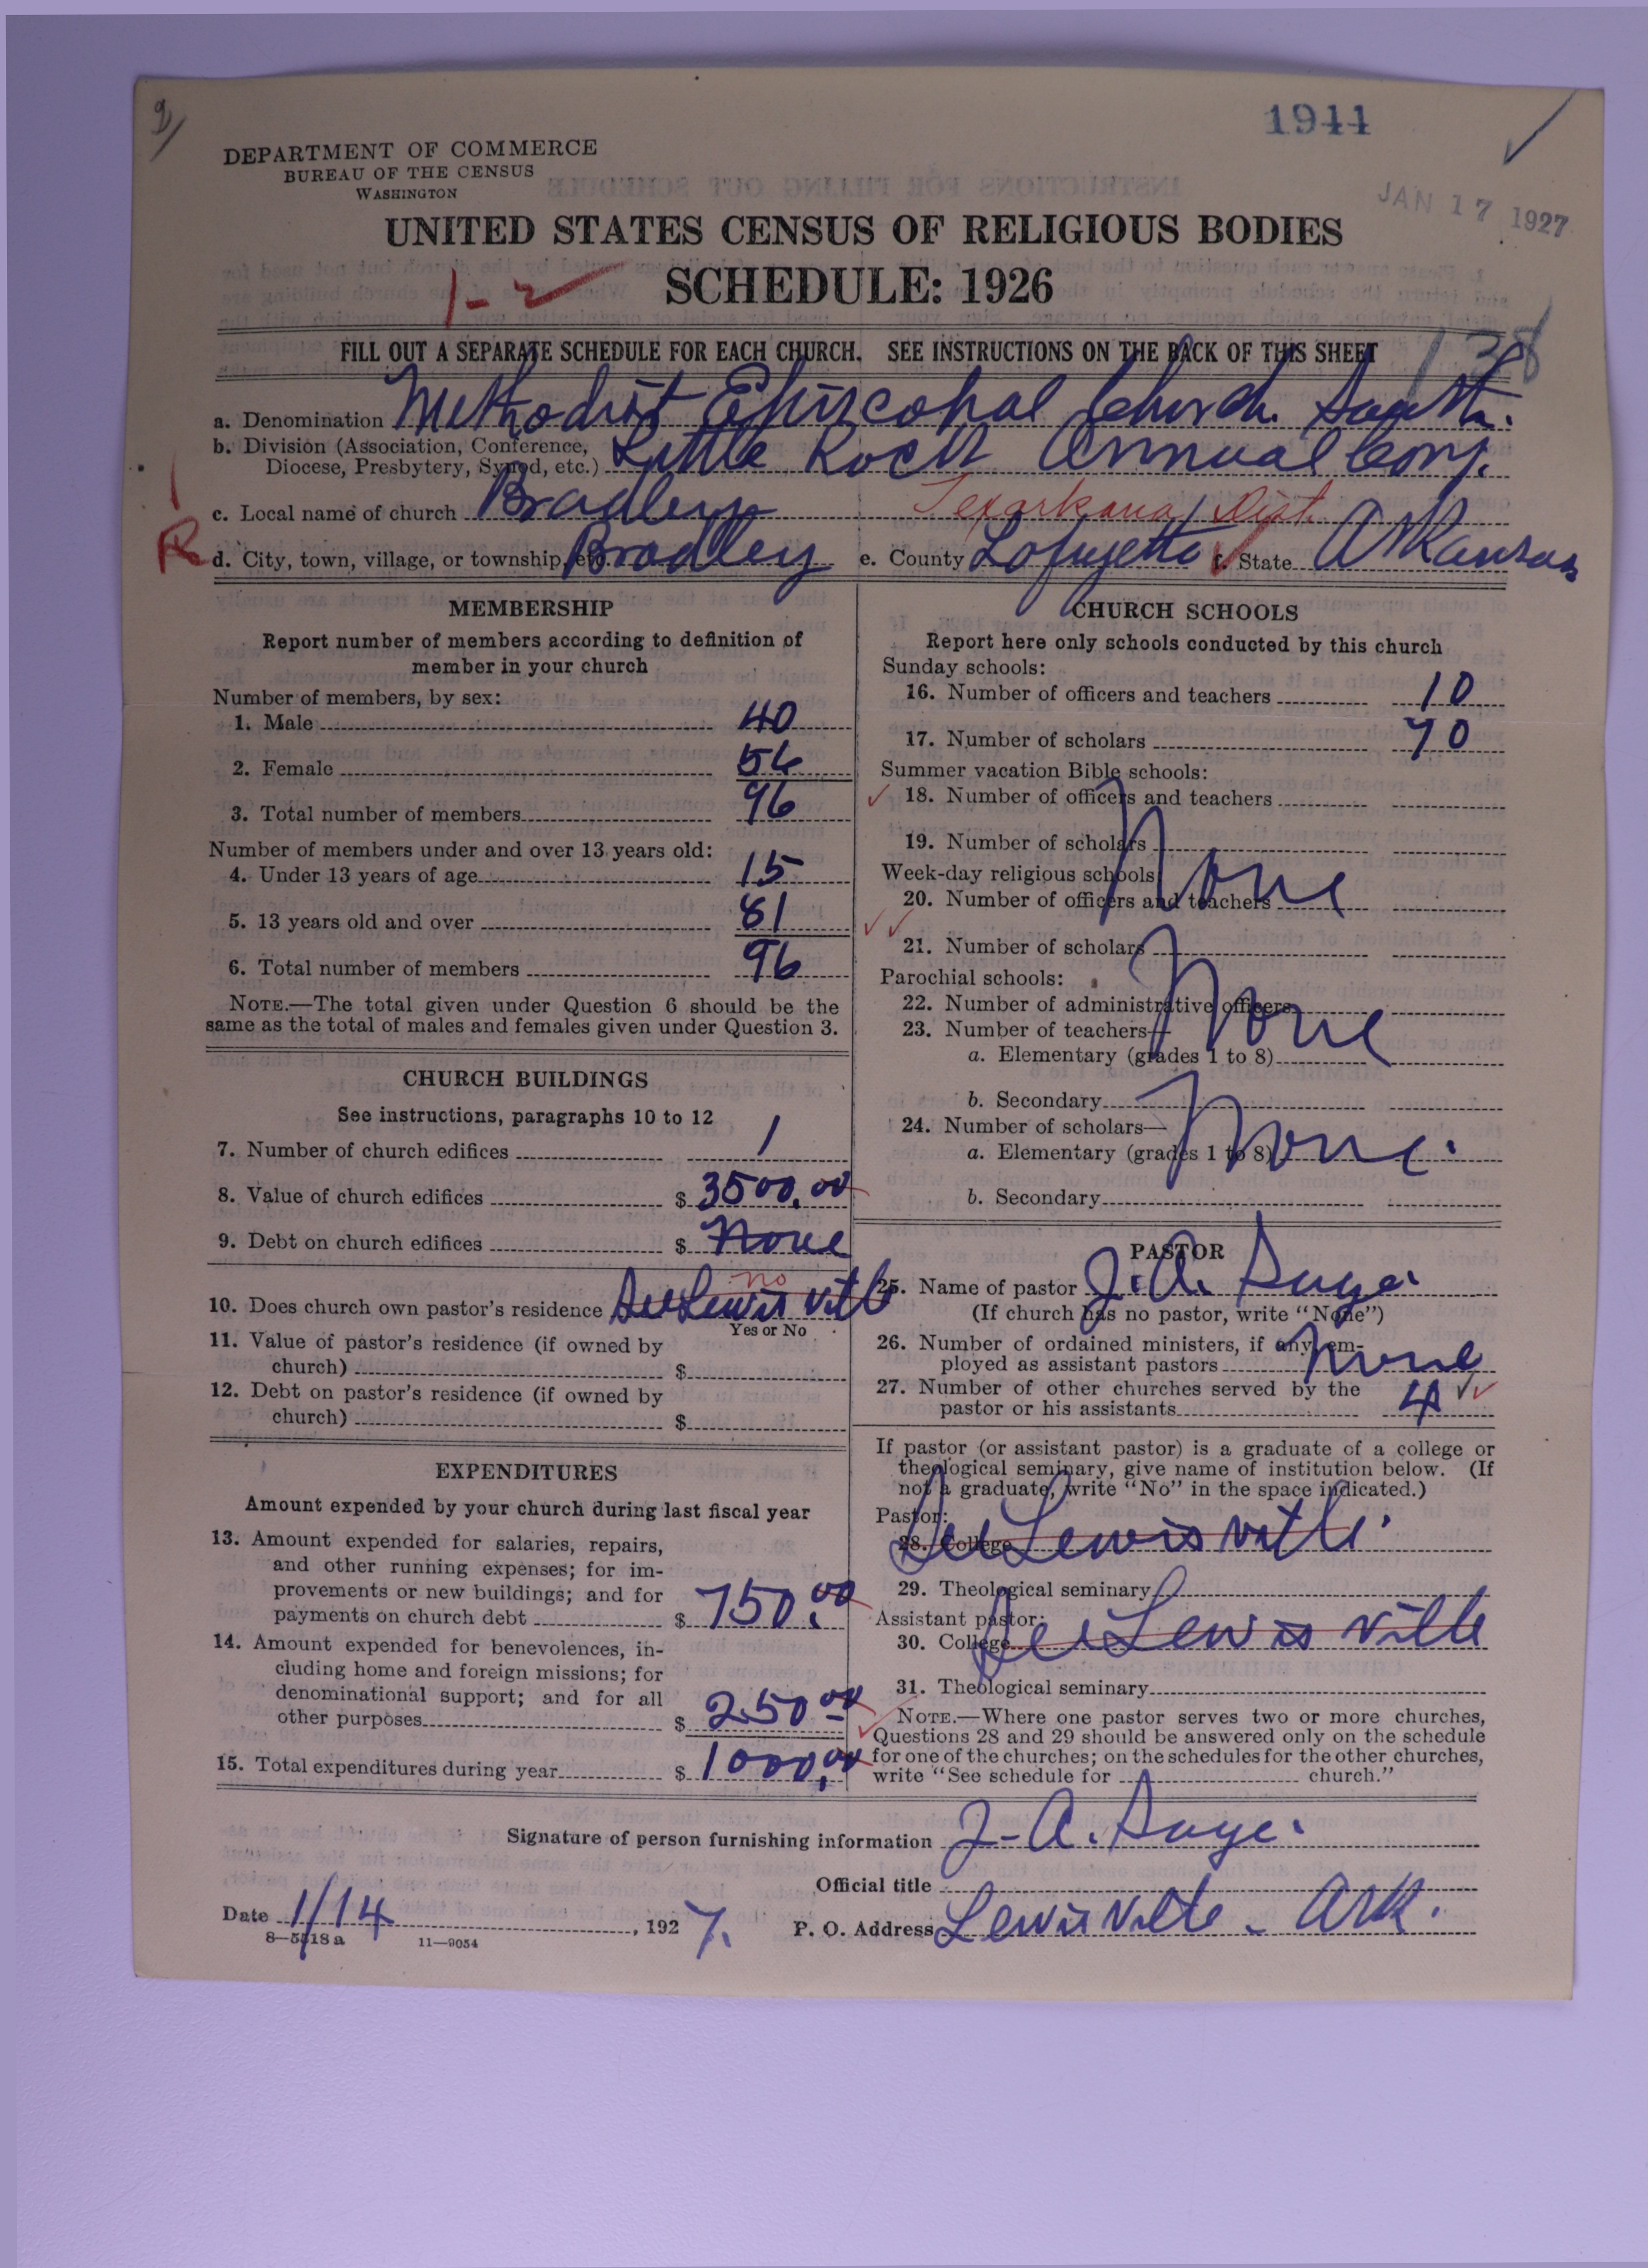 1944
DEPARTMENT OF COMMERCE
BUREAU OF THE CENSUS
WASHINGTON
JAN 17 1927
UNITED STATES CENSUS OF RELIGIOUS BODIES
1-2
SCHEDULE: 1926
138
FILL OUT A SEPARATE SCHEDULE FOR EACH CHURCH. SEE INSTRUCTIONS ON THE BACK OF THIS SHEET
a. Denomination Methodist Episcopal Church South.
b. Division (Association, Conference,
Diocese, Presbytery, Synod, etc.) Little Rock Annual Conf.
c. Local name of church Bradley Texarkana Dist.
R d. City, town, village, or township, etc. Bradley e. County Lafayette f. State Arkansas
MEMBERSHIP
Report number of members according to definition of
member in your church
Number of members, by sex:
1. Male 40
2. Female 56
3. Total number of members 96
Number of members under and over 13 years old:
4. Under 13 years of age 15
5. 13 years old and over 81
6. Total number of members 96
NOTE.—The total given under Question 6 should be the
same as the total of males and females given under Question 3.
CHURCH BUILDINGS
See instructions, paragraphs 10 to 12
7. Number of church edifices 1
8. Value of church edifices $ 3500.00
9. Debt on church edifices $ None
no
10. Does church own pastor's residence See Lewisville
Yes or No
11. Value of pastor's residence (if owned by
church) $
12. Debt on pastor's residence (if owned by
church) $
EXPENDITURES
Amount expended by your church during last fiscal year
13. Amount expended for salaries, repairs,
and other running expenses; for im-
provements or new buildings; and for
payments on church debt $ 750.00
14. Amount expended for benevolences, in-
cluding home and foreign missions; for
denominational support; and for all
other purposes $ 250.00
15. Total expenditures during year $ 1000.00
CHURCH SCHOOLS
Report here only schools conducted by this church
Sunday schools:
16. Number of officers and teachers 10
17. Number of scholars 70
Summer vacation Bible schools:
18. Number of officers and teachers
19. Number of scholars None
Week-day religious schools
20. Number of officers and teachers
21. Number of scholars
Parochial schools:
22. Number of administrative officers None
23. Number of teachers—
a. Elementary (grades 1 to 8)
b. Secondary
24. Number of scholars—
a. Elementary (grades 1 to 8) None.
b. Secondary
PASTOR
25. Name of pastor J. A. Sage.
(If church has no pastor, write "None")
26. Number of ordained ministers, if any, em-
ployed as assistant pastors None
27. Number of other churches served by the
pastor or his assistants 4
If pastor (or assistant pastor) is a graduate of a college or
theological seminary, give name of institution below. (If
not a graduate, write "No" in the space indicated.)
Pastor:
28. College See Lewisville.
29. Theological seminary
Assistant pastor:
30. College See Lewisville
31. Theological seminary
NOTE.—Where one pastor serves two or more churches,
Questions 28 and 29 should be answered only on the schedule
for one of the churches; on the schedules for the other churches,
write "See schedule for church."
Signature of person furnishing information J. A. Sage.
Official title
Date 1/14, 1927. P. O. Address Lewisville - Ark.
8—5518a 11—9054